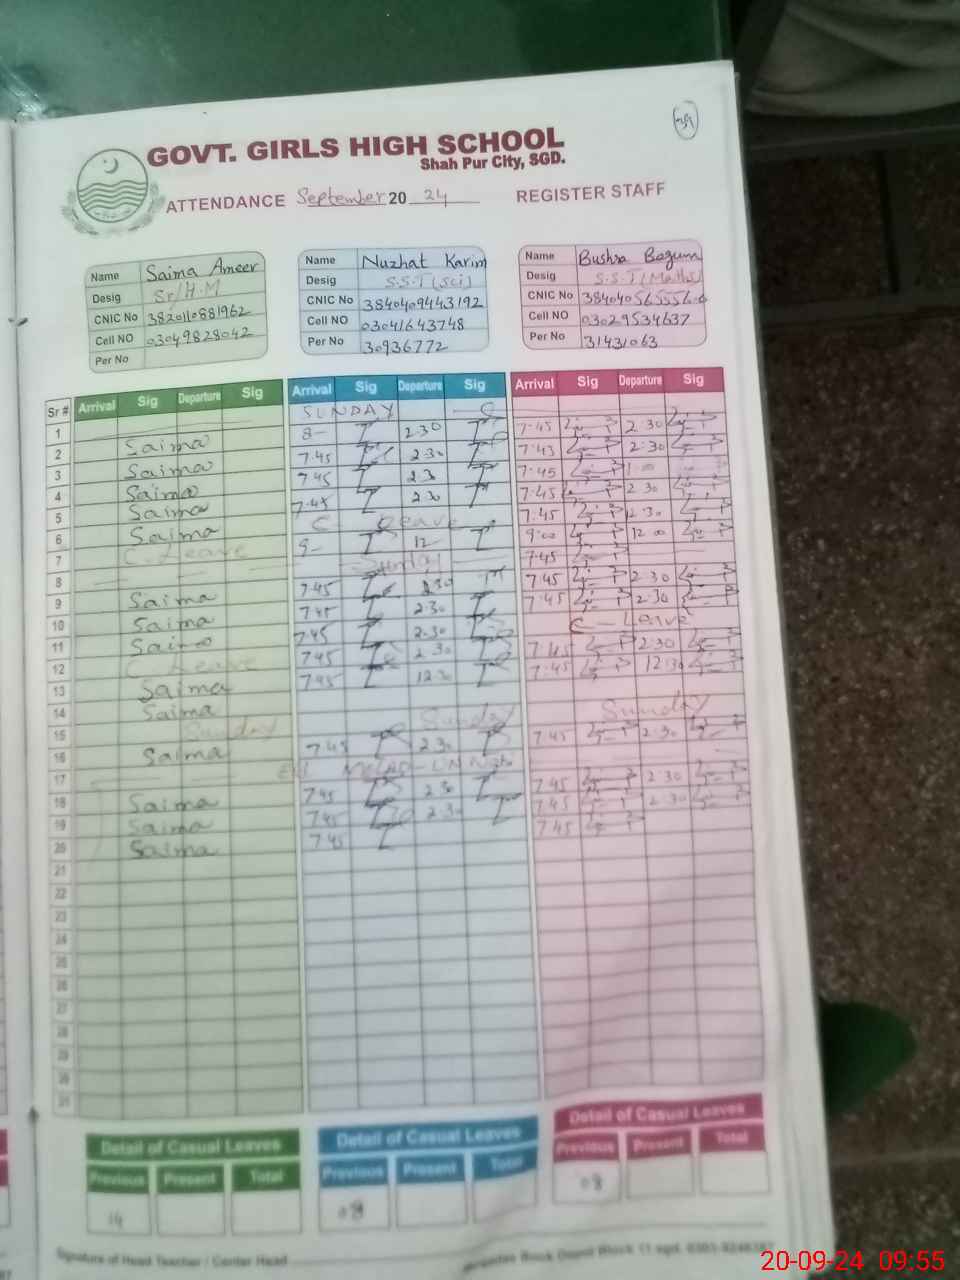 GOVT. GIRLS HIGH SCHOOL
Shah Pur City, SGD.
ATTENDANCE September 20 24 REGISTER STAFF
Name Saima Ameer
Desig Sr/H.M
CNIC No 3820110881962
Cell NO 03049828042
Per No
Name Nuzhat Karim
Desig S.S.T (Sci)
CNIC No 3840409443192
Cell NO 03041643748
Per No 30936772
Name Bushra Begum
Desig S.S.T (Maths)
CNIC No 3840405655560
Cell NO 03029534637
Per No 31431063
Sr # Arrival Sig Departure Sig Arrival Sig Departure Sig Arrival Sig Departure Sig
1 SUNDAY
2 Saima 8- 2.30 7.45 2.30
3 Saima 7.45 2.30 7.45 2.30
4 Saima 7.45 2.30 7.45
5 Saima 7.45 2.30 7.45 2.30
6 Saima C- Leave 7.45 2.30
7 C. Leave 9- 12- 9.00 12.00
8 Sunday 7.45
9 Saima 7.45 2.30 7.45 2.30
10 Saima 7.45 2.30 7.45 2.30
11 Saima 7.45 2.30 C- Leave
12 C. Leave 7.45 2.30 7.45 2.30
13 Saima 7.45 12.30 7.45 12.30
14 Saima
15 Sunday Sunday Sunday
16 Saima 7.45 2.30 7.45 2.30
17 MELAD-UN
18 Saima 7.45 2.30 7.45 2.30
19 Saima 7.45 2.30 7.45 2.30
20 Saima 7.45 7.45
21
22
23
24
25
26
27
28
29
30
31
Detail of Casual Leaves Detail of Casual Leaves Detail of Casual Leaves
Previous Present Total Previous Present Total Previous Present Total
14 08 08
Signature of Head Teacher / Center Head
20-09-24 09:55